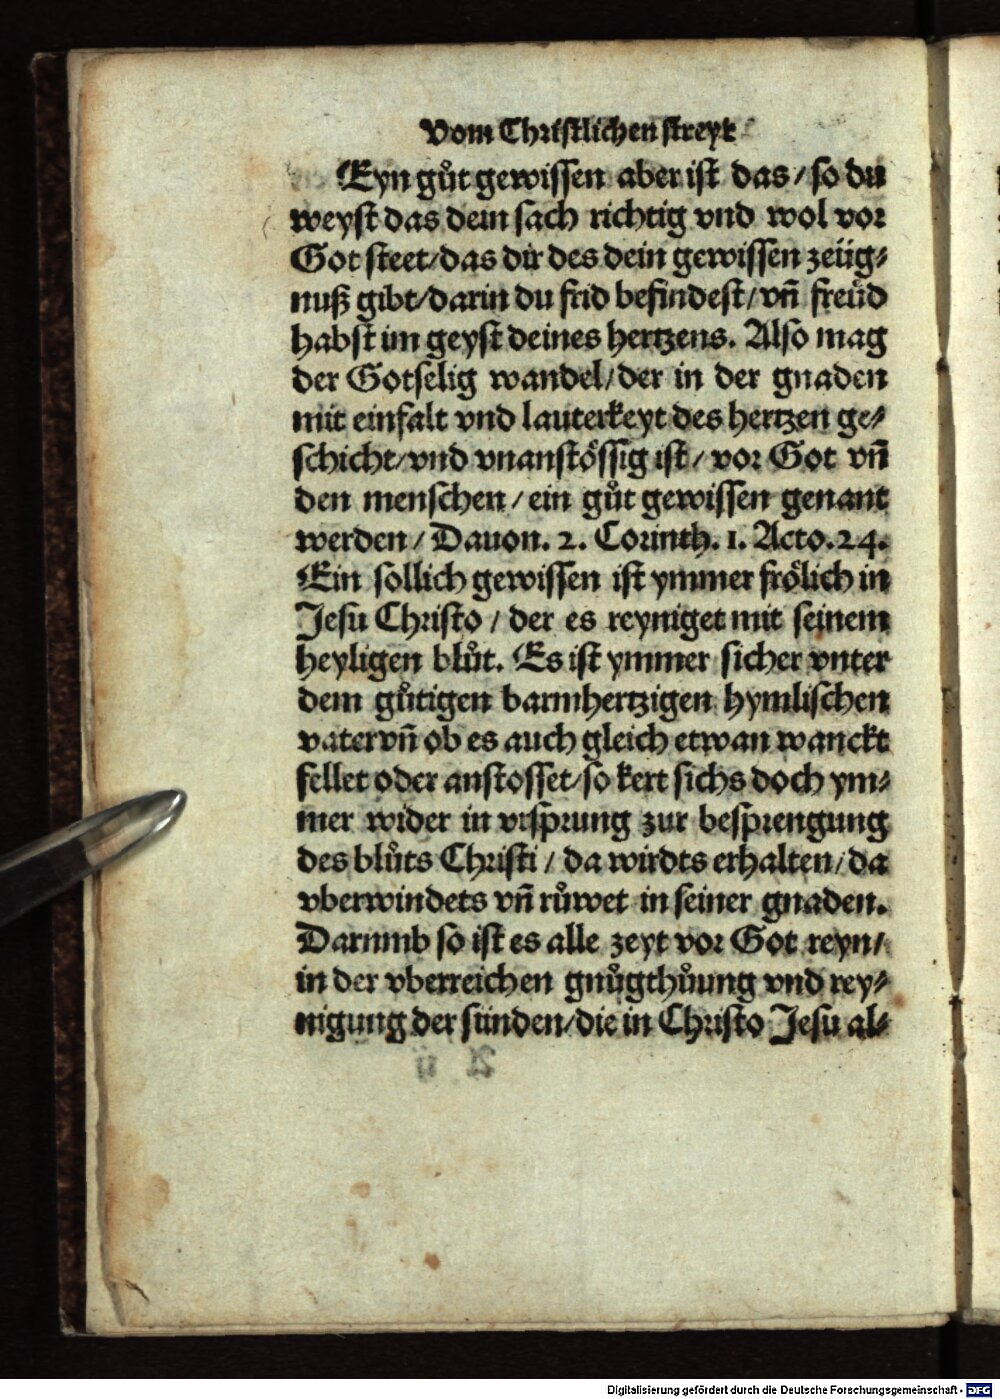 Vom Christlichen streyt
Eyn gůt gewissen aber ist das / so du
weyst das dein sach richtig vnd wol vor
Got steet / das dir des dein gewissen zeüg⸗
nuß gibt / darin du frid befindest / vñ freüd
habst im geyst deines hertzens. Also mag
der Gotselig wandel / der in der gnaden
mit einfalt vnd lauterkeyt des hertzen ge⸗
schicht / vnd vnanstössig ist / vor Got vñ
den menschen / ein gůt gewissen genant
werden / Dauon. 2. Corinth. 1. Acto. 24.
Ein sollich gewissen ist ymmer frölich in
Jesu Christo / der es reyniget mit seinem
heyligen blůt. Es ist ymmer sicher vnter
dem gůtigen barmhertzigen hymlischen
vater vñ ob es auch gleich etwan wanckt
fellet oder anstosset / so kert sichs doch ym⸗
mer wider in vrsprung zur besprengung
des blůts Christi / da wirdts erhalten / da
vberwindets vñ růwet in seiner gnaden.
Darumb so ist es alle zeyt vor Got reyn /
in der vberreichen gnůgthůung vnd rey⸗
nigung der sünden / die in Christo Jesu al⸗
Digitalisierung gefördert durch die Deutsche Forschungsgemeinschaft - DFG